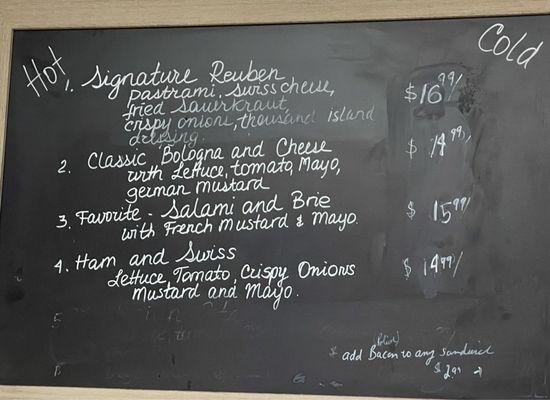 Hot
Cold
1. Signature Reuben $16.99/
Pastrami, Swiss cheese,
fried sauerkraut,
crispy onions, thousand island
dressing.
2. Classic, Bologna and Cheese $14.99/
with Lettuce, tomato, Mayo,
german mustard
3. Favorite - Salami and Brie $15.99/
with French Mustard & Mayo.
4. Ham and Swiss $14.99/
Lettuce, Tomato, Crispy Onions
Mustard and Mayo.
5
add Bacon to any sandwich
$2.99